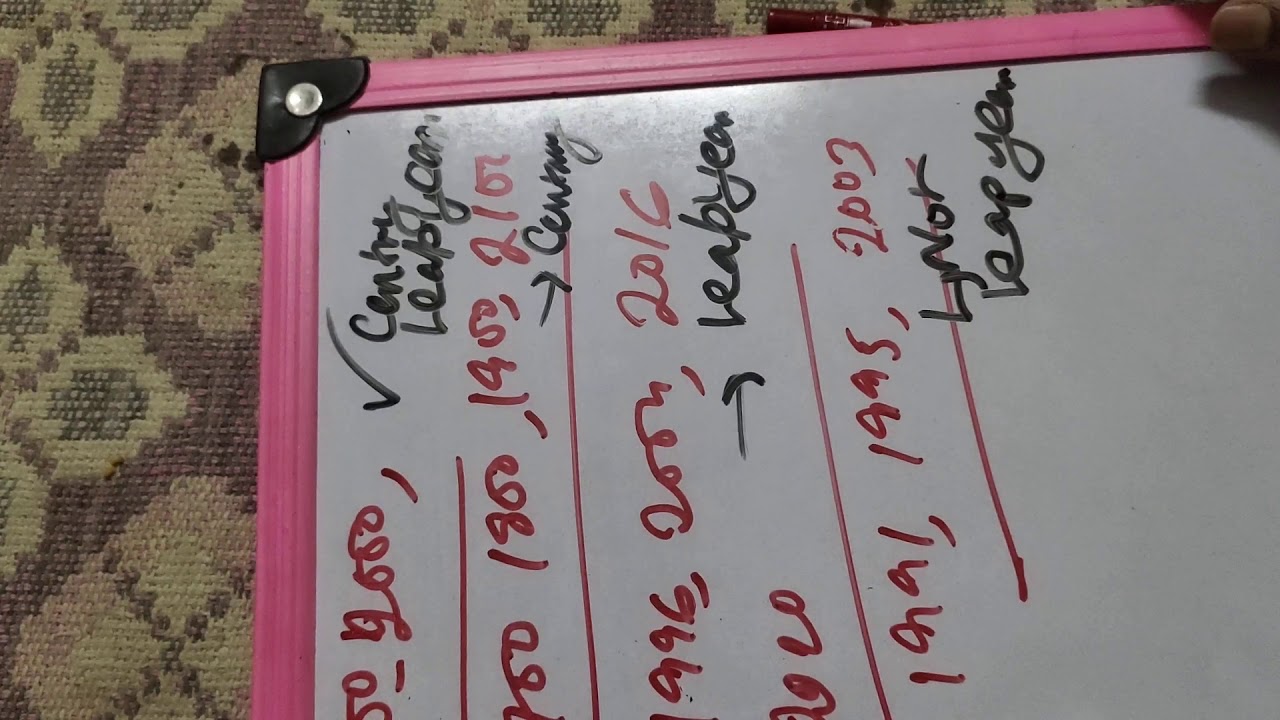 2000, ✓ Century Leap Year
1800, 1900, 2100 → Century
1996, 2004, 2016
2020 → Leap Year
1991, 1995, 2003
↳ Not Leap Year